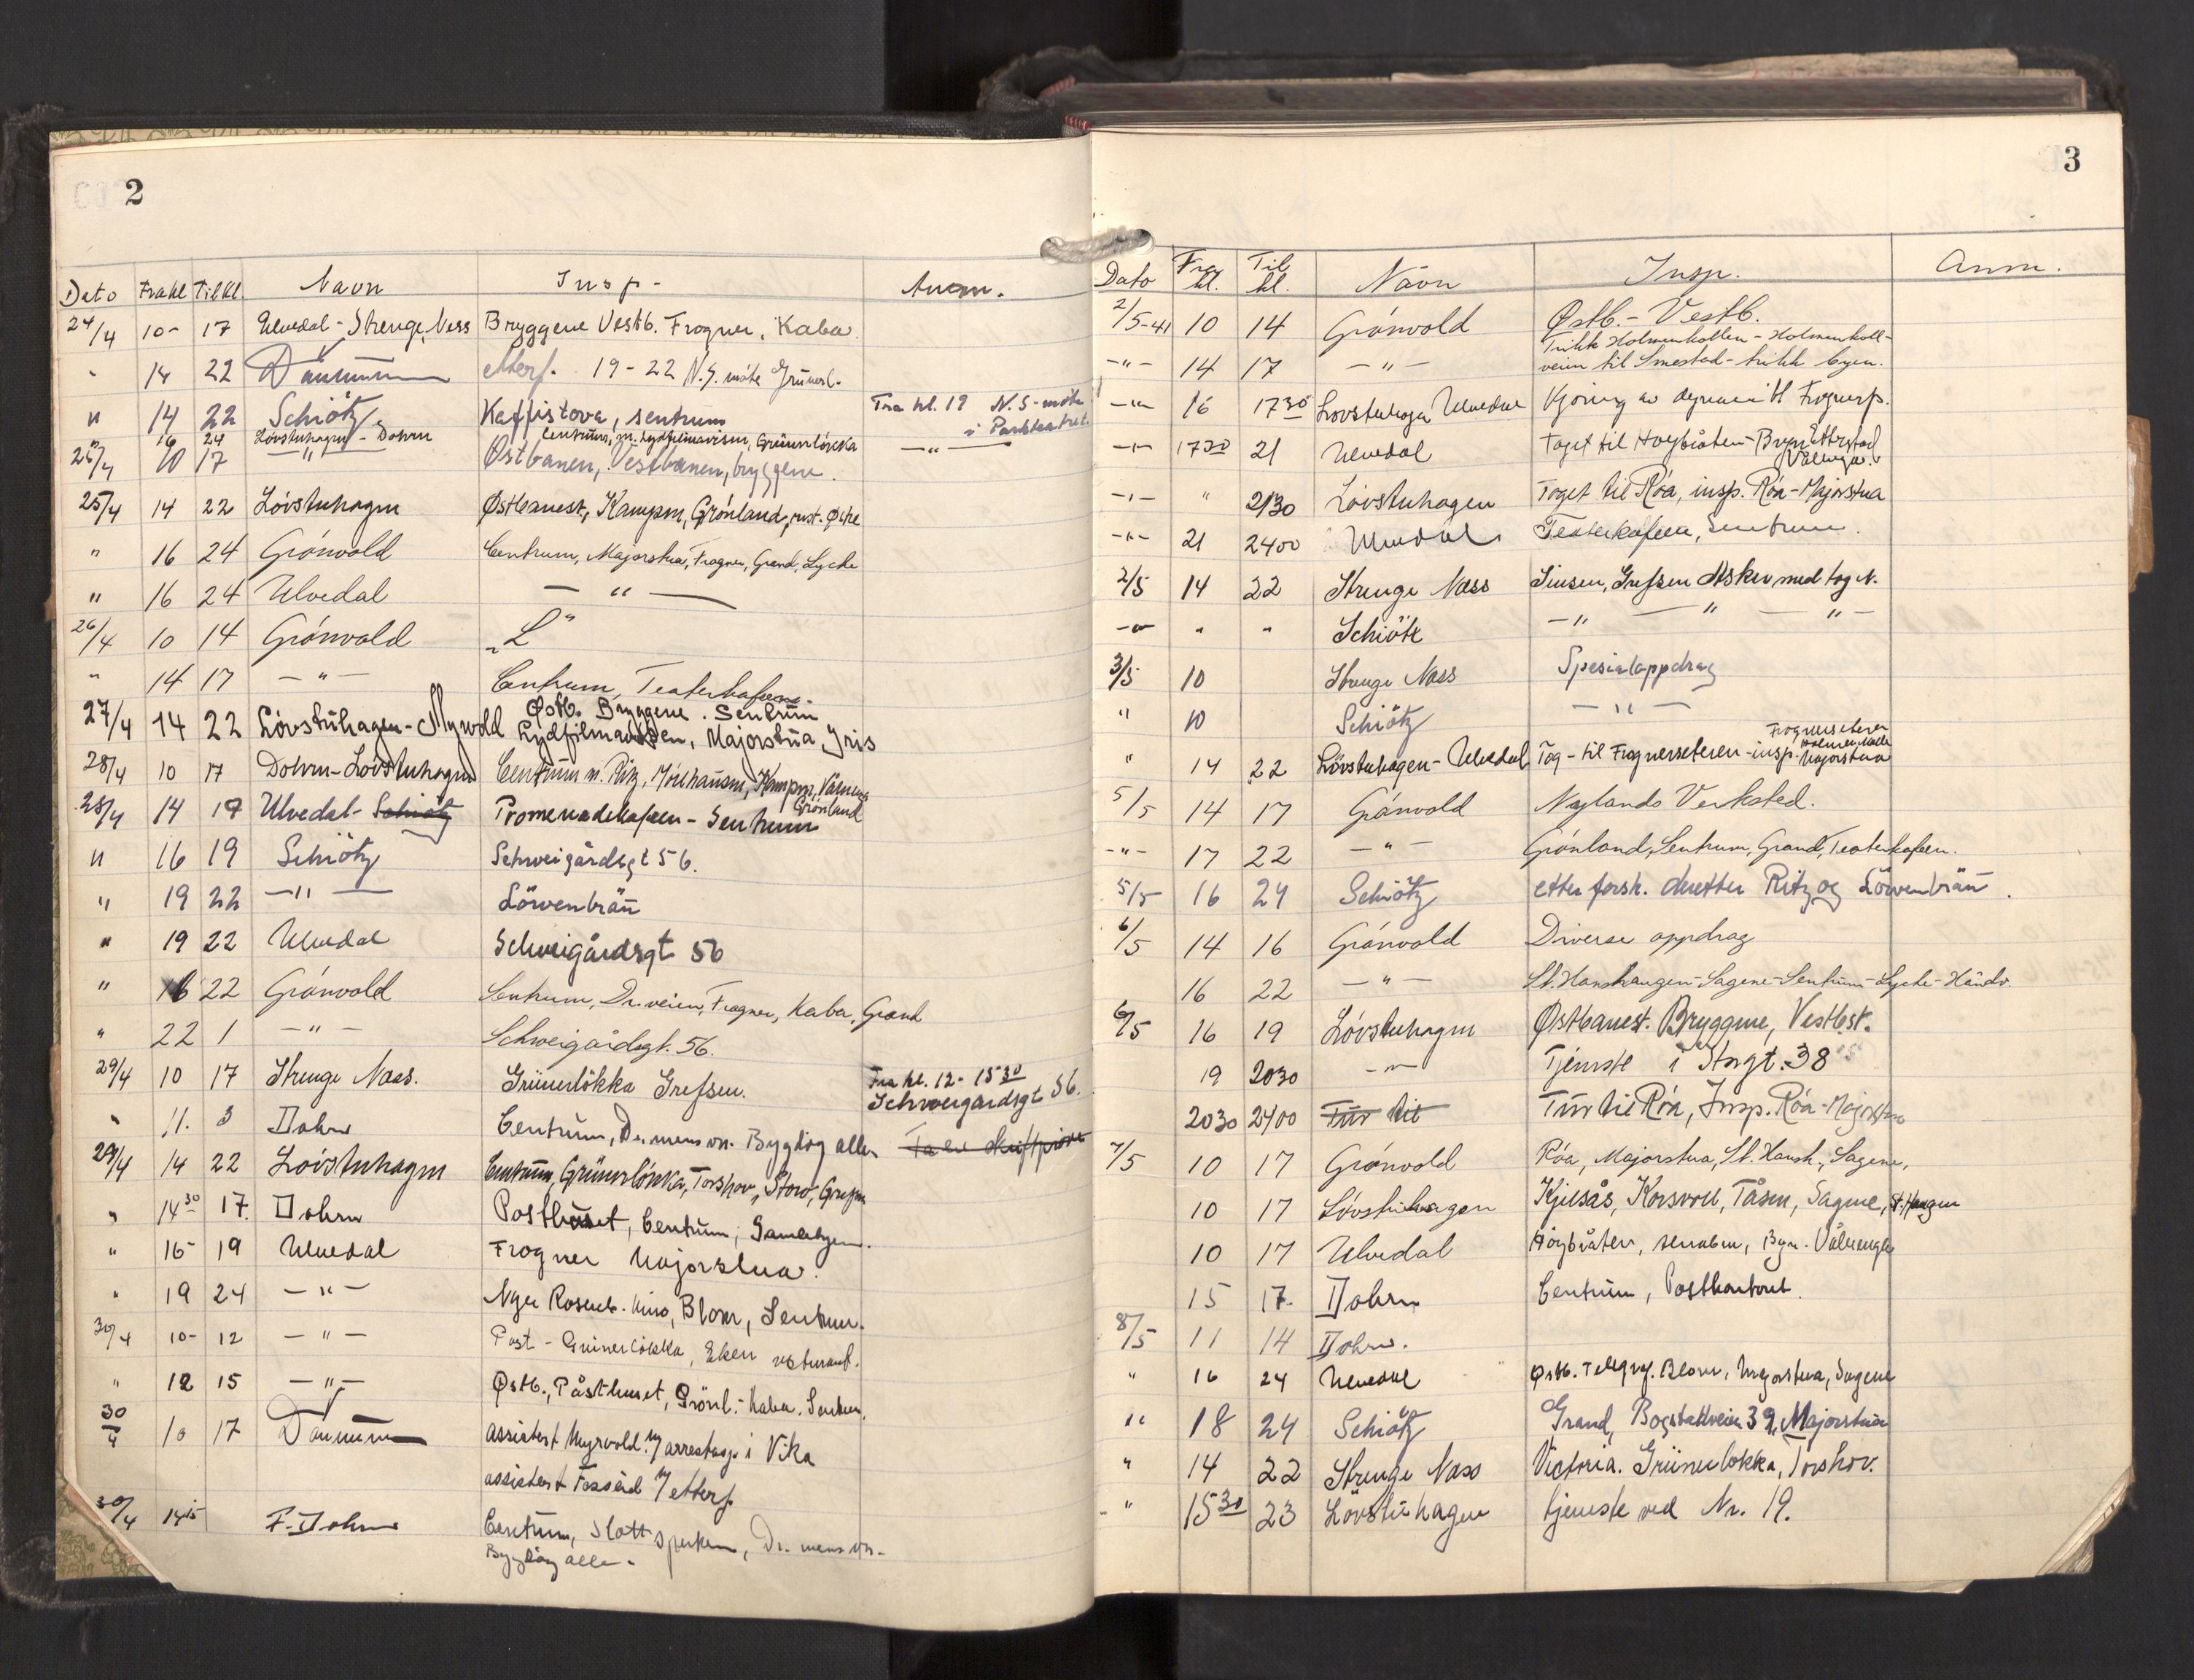 2
Dato Fra kl Til kl. Navn Insp- Anm.
24/4 10- 17 Ulvedal - Strenge Næss Bryggene Vestb. Frogner, Kaba
" 14 22 etterf. 19-22 N.S. möte Grünerl.
" 14 22 Schiötz Kaffistova, sentrum Fra kl. 19 N.S-möte i Parkteatret.
16 24 Lövstuhagen - Dohrn Centrum, Grünerlökka — " —
25/4 10 17 — " — Østbanen, Vestbanen, bryggene.
25/4 14 22 Lövstuhagen Østbanest., Kampen, Grönland, rest. Østre
" 16 24 Grönvold Centrum, Majorstua, Frogner, Grand, Lyche
" 16 24 Ulvedal — " —
26/4 10 14 Grönvold "L"
" 14 17 — " — Centrum, Teaterkafeen.
Østb. Bryggene. Sentrum
27/4 14 22 Lövstuhagen - Myrvold Lydfilmavisen, Majorstua Iris
28/4 10 17 Dohrn - Lövstuhagen Centrum m. Ritz, Mölhausen, Kampen, Våleren
Grönland
28/4 14 19 Ulvedal - Schiötz Promenadekafeen - Sentrum
" 16 19 Schiötz Schweigårdsgt 56.
" 19 22 — " — Löwenbräu
" 19 22 Ulvedal Schweigårdsgt 56
" 16 22 Grönvold Sentrum, Dr.veien, Frogner, Kaba, Grand
" 22 1 — " — Schweigårdsgt. 56.
29/4 10 17 Strenge Næss. Grünerlökka Grefsen. Fra kl. 12 - 15 30 Schweigårdsgt 56.
" 11. 3 Dohrn Centrum, Drammensvn. Bygdöy alle.
29/4 14 22 Lövstuhagen Centrum, Grünerlökka, Torshov, Storo, Grefsen
" 14 30 17. Dohrn Posthuset, Centrum, Gamlebyen.
" 16- 19 Ulvedal Frogner Majorstua.
" 19 24 — " — Nye Rosenb. kino, Blom, Sentrum.
30/4 10- 12 — " — Post - Grünerlökka, Eken restaurant.
" 12 15 — " — Østb., Påsthuset, Grönl. - Kaba. Sentrum.
30/4 10 17 assistert Myrvold m/ arrestasj. i Vika
assistert Fosseid m/ etterf.
30/4 14 15 F. Dohrn Centrum, Slottsparken, Drammensvn-
Bygdöy alle-
3
Dato Fra kl. Til kl. Navn Insp. Anm.
2/5-41 10 14 Grönvold Østb. - Vestb.
Trikk Holmenkollen - Holmenkoll-
— " — 14 17 — " — veien til Smestad - trikk byen.
— " — 16 17 30 Lövstuhagen Ulvedal Kjöring av til Frognerp.
— " — 17 30 21 Ulvedal Toget til Høybråten - Bryn Etterstad
Vålereng.
— " — " 2130 Lövstuhagen Toget til Röa, insp. Röa - Majorstua
— " — 21 2400 Ulvedal Teaterkafeen, Sentrum.
2/5 14 22 Strenge Næss Sinsen, Grefsen Asker med tog N.
— " — " " Schiötz — " — " — " —
3/5 10 Strenge Næss Spesialoppdrag
" 10 Schiötz — " —
Frognerseteren
Holmenkollen
" 14 22 Lövstuhagen - Ulvedal Tog - til Frognerseteren - insp. Majorstua
5/5 14 17 Grönvold Nylands Verksted.
— " — 17 22 — " — Grönland, Sentrum, Grand, Teaterkafeen.
5/5 16 24 Schiötz etter forsk. deretter Ritz og Löwenbräu.
6/5 14 16 Grönvold Diverse oppdrag
16 22 — " — St. Hanshaugen - Sagene - Sentrum - Lyche - Håndv.
6/5 16 19 Lövstuhagen Østbanest. Bryggene, Vestbst.
19 2030 — " — Tjeneste i Storgt. 38
2030 2400 Tur til Tur til Röa, Insp. Röa - Majorstua
7/5 10 17 Grönvold Röa, Majorstua, St. Hansh., Sagene,
10 17 Lövstuhagen Kjelsås, Korsvoll, Tåsen, Sagene, St. Haugen
10 17 Ulvedal Höybråten, Bryn. Vålerenga
15 17. Dohrn Centrum, Postkontoret.
8/5 11 14 Dohrn.
" 16 24 Ulvedal Østb. Telegraf. Blom, Majorstua, Sagene
" 18 24 Schiötz Grand, Bogstadveien 39, Majorstua
" 14 22 Strenge Næss Victoria. Grünerlokka, Torshov.
" 15 30 23 Lövstuhagen tjeneste ved Nr. 19.